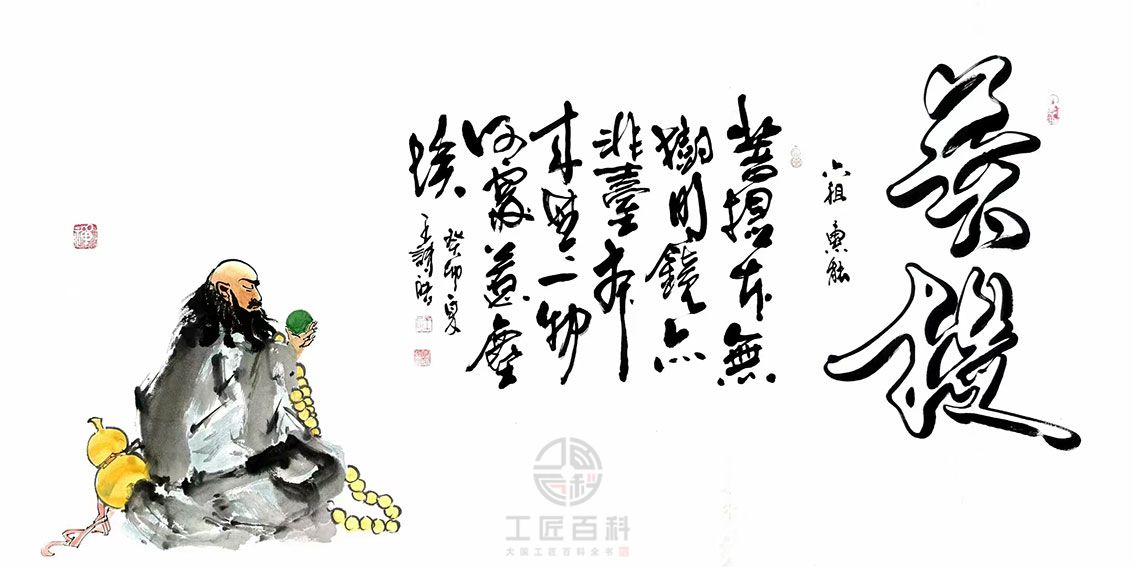 菩提
六祖 惠能
菩提本無
樹明鏡亦
非臺本
来無一物
何處惹塵
埃
癸卯夏
王
禅
工匠百科
大国工匠百科全书